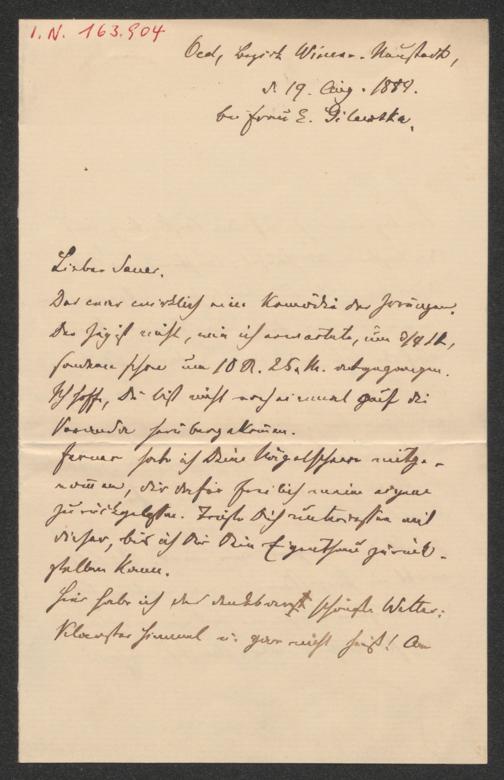 I.N. 163.904
Oed, Bezirk Wiener-Neustadt,
d. 19. Aug. 1889.
bei Frau E. Gilewska.
Lieber Sauer.
Das war wirklich eine Komödie der Irrungen.
Der Zug ist nicht, wie ich erwartete, um 3/4 11,
sondern schon um 10 U. 25 M. abgegangen.
Ich hoffe, Du bist nicht noch einmal auf die
Veranda herübergekom̄en.
Ferner habe ich Deine Nagelscheere mitge-
nom̄en, Dir dafür freilich meine eigene
zurückgelassen. Tröste Dich unterdessen mit
dieser, bis ich Dir Dein Eigenthum zurück-
stellen kann.
Hier habe ich das denkbarst schönste Wetter:
Klarster Himmel u. gar nicht heiß! Am